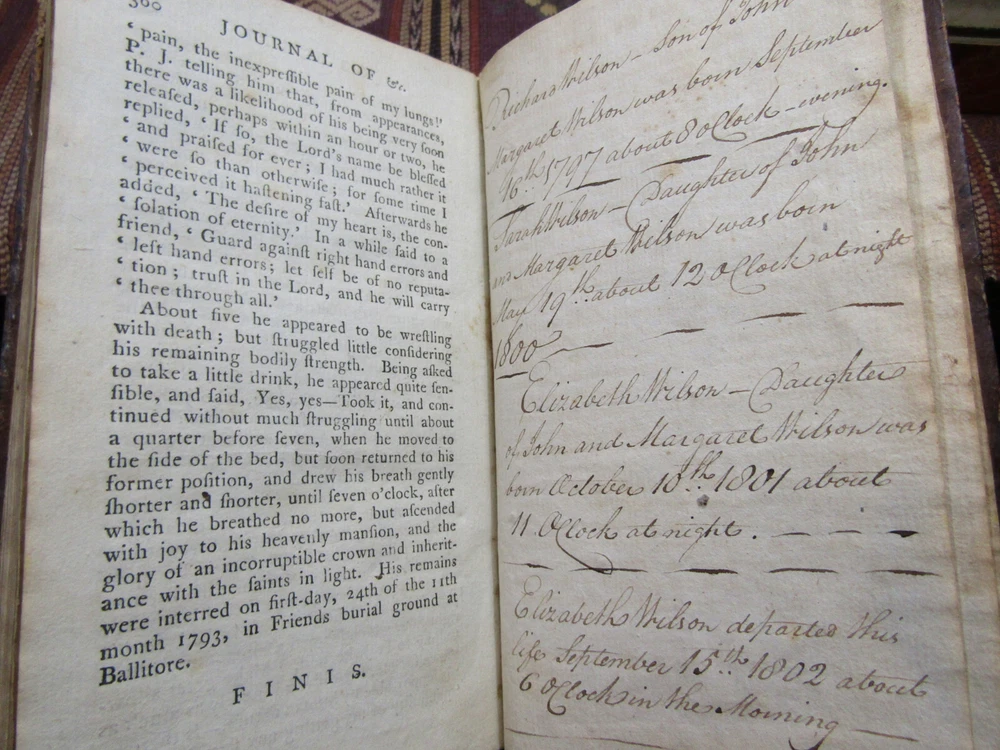 300
JOURNAL OF &c.
‘ pain, the inexpreſſible pain of my lungs!’
P. J. telling him that, from appearances,
there was a likelihood of his being very ſoon
releaſed, perhaps within an hour or two, he
replied, ‘ If ſo, the Lord's name be bleſſed
‘ and praiſed for ever; I had much rather it
‘ were ſo than otherwiſe; for ſome time I
‘ perceived it haſtening faſt.’ Afterwards he
added, ‘ The deſire of my heart is, the con-
‘ ſolation of eternity.’ In a while ſaid to a
friend, ‘ Guard againſt right hand errors and
‘ left hand errors; let ſelf be of no reputa-
‘ tion; truſt in the Lord, and he will carry
‘ thee through all.’
About five he appeared to be wreſtling
with death; but ſtruggled little conſidering
his remaining bodily ſtrength. Being aſked
to take a little drink, he appeared quite ſen-
ſible, and ſaid, Yes, yes—Took it, and con-
tinued without much ſtruggling until about
a quarter before ſeven, when he moved to
the ſide of the bed, but ſoon returned to his
former poſition, and drew his breath gently
ſhorter and ſhorter, until ſeven o'clock, after
which he breathed no more, but aſcended
with joy to his heavenly manſion, and the
glory of an incorruptible crown and inherit-
ance with the ſaints in light. His remains
were interred on firſt-day, 24th of the 11th
month 1793, in Friends burial ground at
Ballitore.
FINIS.
Richard Wilson – Son of John
Margaret Wilson was born September
16th 1797 about 8 oClock – evening.
Sarah Wilson – Daughter of John
and Margaret Wilson was born
May 19th about 12 oClock at night
1800
Elizabeth Wilson – Daughter
of John and Margaret Wilson was
born October 18th 1801 about
11 OClock at night.
Elizabeth Wilson departed this
life September 15th 1802 about
6 OClock in the Morning